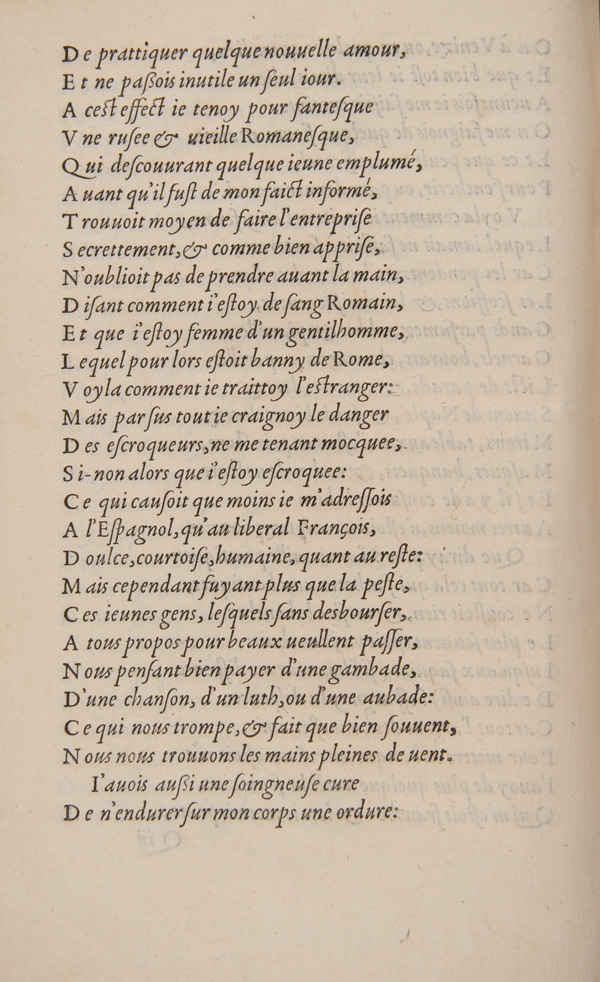 De prattiquer quelque nouuelle amour,
Et ne paßois inutile un ſeul iour.
A ceſt effect ie tenoy pour fanteſque
Vne ruſee & uieille Romaneſque,
Qui deſcouurant quelque ieune emplumé,
Auant qu'il fuſt de mon faict informé,
Trouuoit moyen de faire l'entrepriſe
Secrettement, & comme bien appriſe,
N'oublioit pas de prendre auant la main,
Diſant comment i'eſtoy de ſang Romain,
Et que i'eſtoy femme d'un gentilhomme,
Lequel pour lors eſtoit banny de Rome,
Voyla comment ie traittoy l'eſtranger:
Mais par ſus tout ie craignoy le danger
Des eſcroqueurs, ne me tenant mocquee,
Si-non alors que i'eſtoy eſcroquee:
Ce qui cauſoit que moins ie m'adreſſois
A l'Eſpagnol, qu'au liberal François,
Doulce, courtoiſe, humaine, quant au reſte:
Mais cependant fuyant plus que la peſte,
Ces ieunes gens, leſquels ſans desbourſer,
A tous propos pour beaux ueullent paſſer,
Nous penſant bien payer d'une gambade,
D'une chanſon, d'un luth, ou d'une aubade:
Ce qui nous trompe, & fait que bien ſouuent,
Nous nous trouuons les mains pleines de uent.
I'auois außi une ſoingneuſe cure
De n'endurer ſur mon corps une ordure: